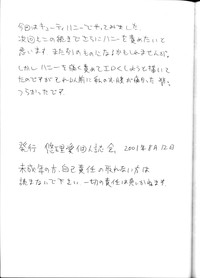 今回はキューティハニーでやってみました
次回もこの続きでさらにハニーを責めたいと
思います またがらのものになるかもしれませんが。
しかしハニーを強く責めてエロくしようと描いて
たのですが それ以前に私のお腹が痛かった
つらかったです。
発行 悠理愛個人誌会 2001年8月12日
未成年の方、自己責任の取れない方は
読まないで下さい 一切の責任は負いかねます